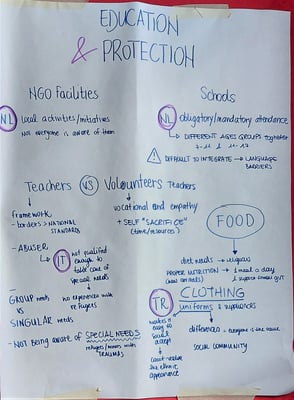 EDUCATION
& PROTECTION
NGO Facilities
NL local activities/initiatives
Not everyone is aware of them
Schools
NL obligatory/mandatory attendance
DIFFERENT AGES GROUPS together
DIFFICULT TO INTEGRATE → LANGUAGE
BARRIERS
Teachers VS Volunteers Teachers
framework
- borders > NATIONAL
STANDARDS
- ABUSER
IT not qualified
enough to
take care of
special needs
GROUP needs
VS
SINGULAR needs
no experience with
refugees
- NOT BEING AWARE OF SPECIAL NEEDS
refugees/minors with
TRAUMAS
vocational and empathy
+ SELF "SACRIFICE"
(time/resources)
FOOD
diet needs → religious
PROPER NUTRITION → 1 meal a day
CLOTHING
TR uniforms & experiences
makes it
easy to
accept
differences → everyone is the same
SOCIAL COMMUNITY
the ethnic
appearance